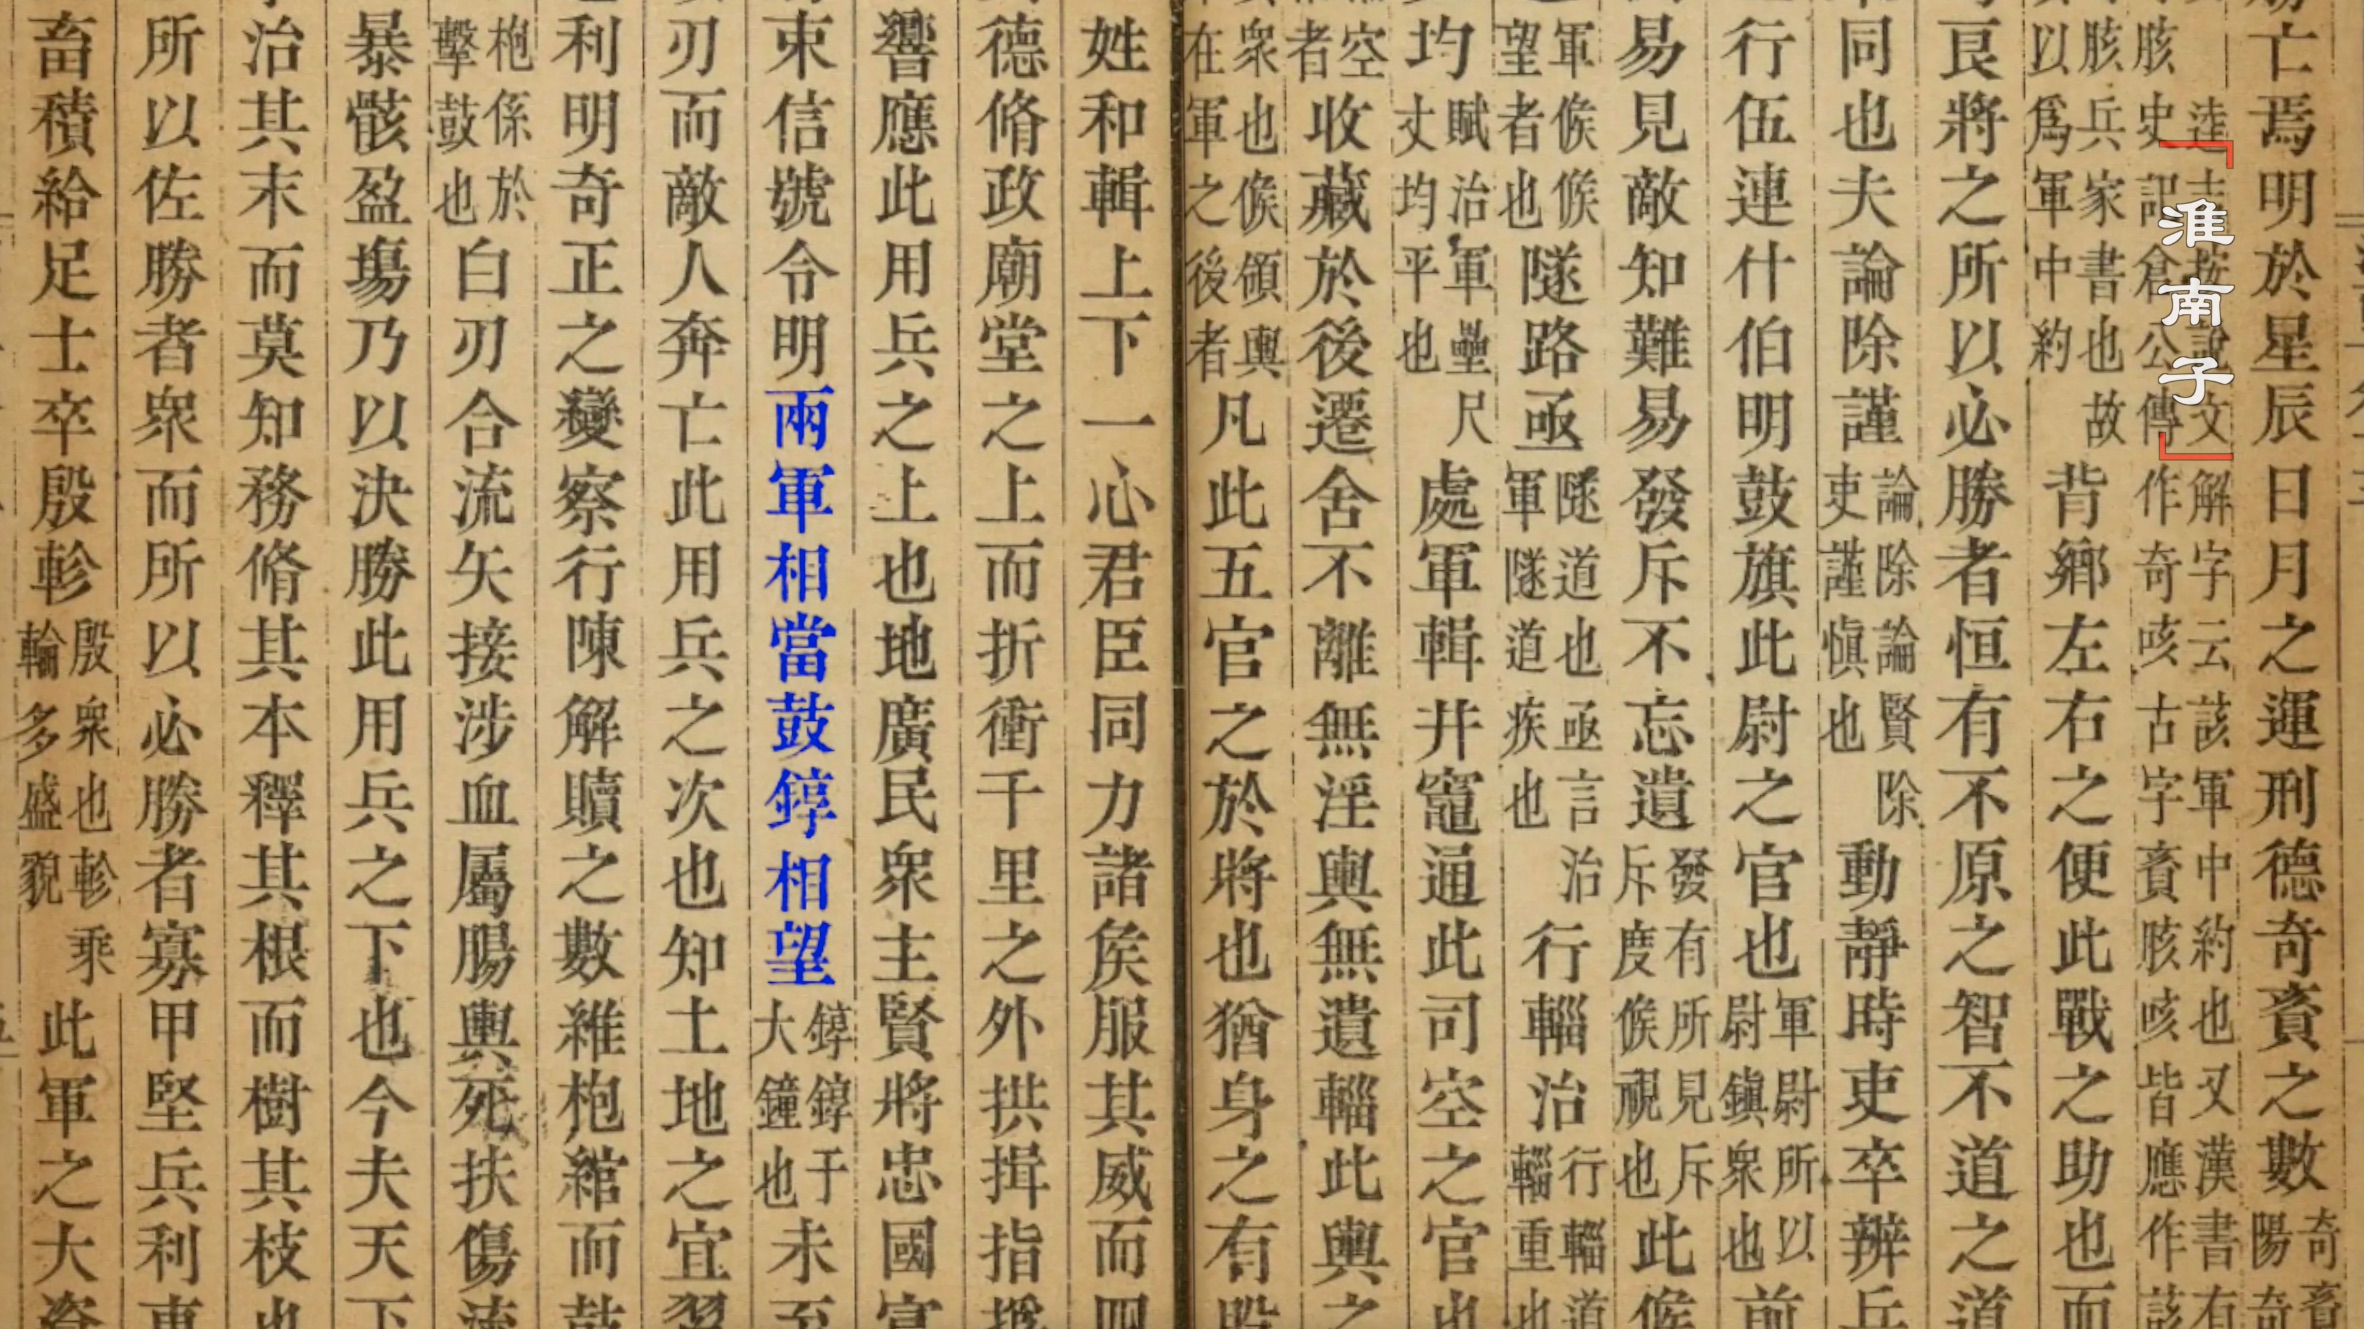 淮南子
亡焉明於星辰日月之運刑德奇賌之數奇賌陽奇
解字云該軍中約也又漢書有胲史記倉公傳作奇咳古字賌胲咳皆應作該
胲兵家書也故以爲軍中約背鄉左右之便此戰之助也而
良將之所以必勝者恒有不原之智不道之道
同也夫論除謹論除論賢除吏謹慎也動靜時吏卒辨兵
行伍連什伯明鼓旗此尉之官也軍尉所以尉鎮衆也前
易見敵知難易發斥不忘遺發有所見斥斥度候視也此候
軍候候望者也隧路亟隧道也亟言治軍隧道疾也行輜治行輜道輜重也
均賦治軍壘尺丈均平也處軍輯井竈通此司空之官也
空者收藏於後遷舍不離無淫輿無遺輜此輿之
衆也候領輿在軍之後者凡此五官之於將也猶身之有股
姓和輯上下一心君臣同力諸矦服其威而四
德脩政廟堂之上而折衝千里之外拱揖指撝
響應此用兵之上也地廣民衆主賢將忠國富
束信號令明兩軍相當鼓錞相望錞錞于大鐘也未至
刃而敵人奔亡此用兵之次也知土地之宜習
利明奇正之變察行陳解贖之數維枹綰而鼓
枹係於擊鼓也白刃合流矢接涉血屬腸輿死扶傷流
暴骸盈場乃以決勝此用兵之下也今夫天下
治其末而莫知務脩其本釋其根而樹其枝也
所以佐勝者衆而所以必勝者寡甲堅兵利車
畜積給足士卒殷軫殷衆也軫乘輪多盛貌此軍之大資